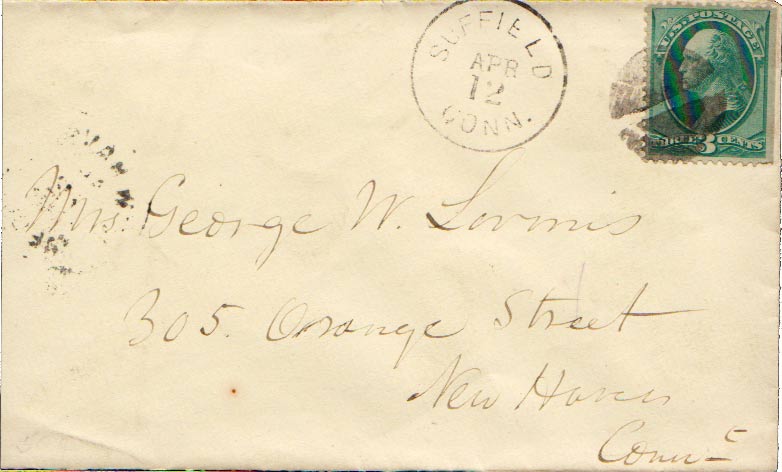 SUFFIELD
APR
12
CONN.
U.S. POSTAGE
THREE 3 CENTS
Mrs. George W. Loomis
305. Orange Street
New Haven
Conn